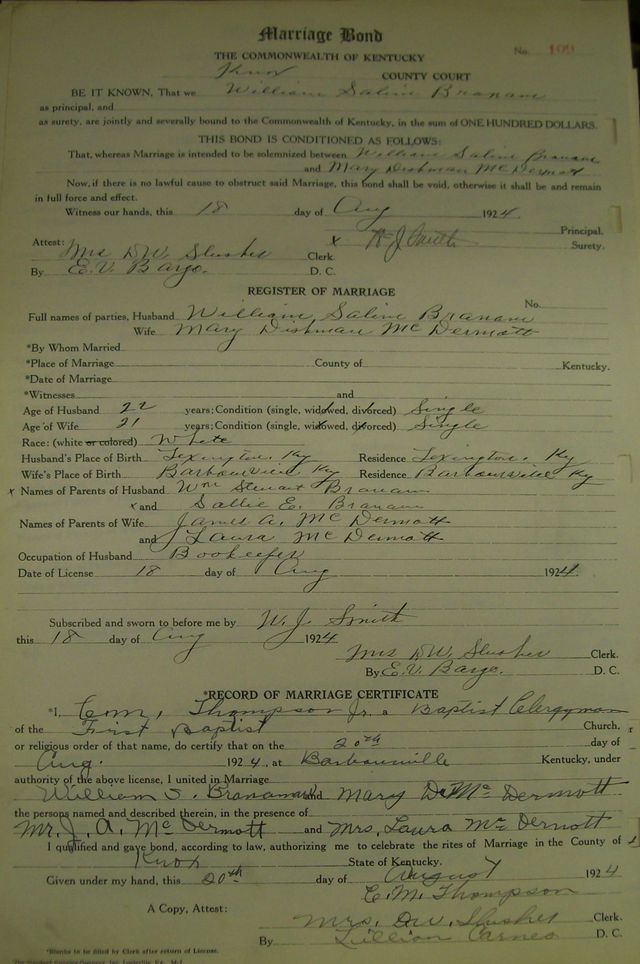 Marriage Bond
THE COMMONWEALTH OF KENTUCKY No. 109
Knox COUNTY COURT
BE IT KNOWN, That we William Saline Branam
as principal, and
as surety, are jointly and severally bound to the Commonwealth of Kentucky, in the sum of ONE HUNDRED DOLLARS.
THIS BOND IS CONDITIONED AS FOLLOWS:
That, whereas Marriage is intended to be solemnized between William Saline Branam
and Mary Dishman McDermott
Now, if there is no lawful cause to obstruct said Marriage, this bond shall be void, otherwise it shall be and remain
in full force and effect.
Witness our hands, this 18 day of Aug 1924
Principal.
Attest: x W J Smith Surety.
Mrs D W. Slusher Clerk
By E. V. Bargo. D. C.
REGISTER OF MARRIAGE
No.
Full names of parties, Husband William Saline Branam
Wife Mary Dishman McDermott
*By Whom Married
*Place of Marriage County of Kentucky.
*Date of Marriage
*Witnesses and
Age of Husband 22 years; Condition (single, widowed, divorced) Single
Age of Wife 21 years; Condition (single, widowed, divorced) Single
Race: (white or colored) White
Husband's Place of Birth Lexington, Ky Residence Lexington, Ky
Wife's Place of Birth Barbourville, Ky Residence Barbourville Ky
x Names of Parents of Husband Wm Stewart Branam
x and Sallie E. Branam
Names of Parents of Wife James A. McDermott
and Laura McDermott
Occupation of Husband Bookeeper
Date of License 18 day of Aug 1924.
Subscribed and sworn to before me by W. J. Smith
this 18 day of Aug 1924
Mrs D W. Slusher Clerk.
By E. V. Bargo. D. C.
*RECORD OF MARRIAGE CERTIFICATE
*I, E. M. Thompson Jr. a Baptist Clergyman
of the First Baptist Church,
or religious order of that name, do certify that on the 20th day of
Aug. 1924, at Barbourville Kentucky, under
authority of the above license, I united in Marriage
William S. Branam and Mary D. McDermott
the persons named and described therein, in the presence of
Mr. J. A. McDermott and Mrs. Laura McDermott
I qualified and gave bond, according to law, authorizing me to celebrate the rites of Marriage in the County of
Knox State of Kentucky.
Given under my hand, this 20th day of August 1924
E. M. Thompson
A Copy, Attest:
Mrs. D. W. Slusher Clerk.
By Lillian Carnes D. C.
*Blanks to be filled by Clerk after return of License.